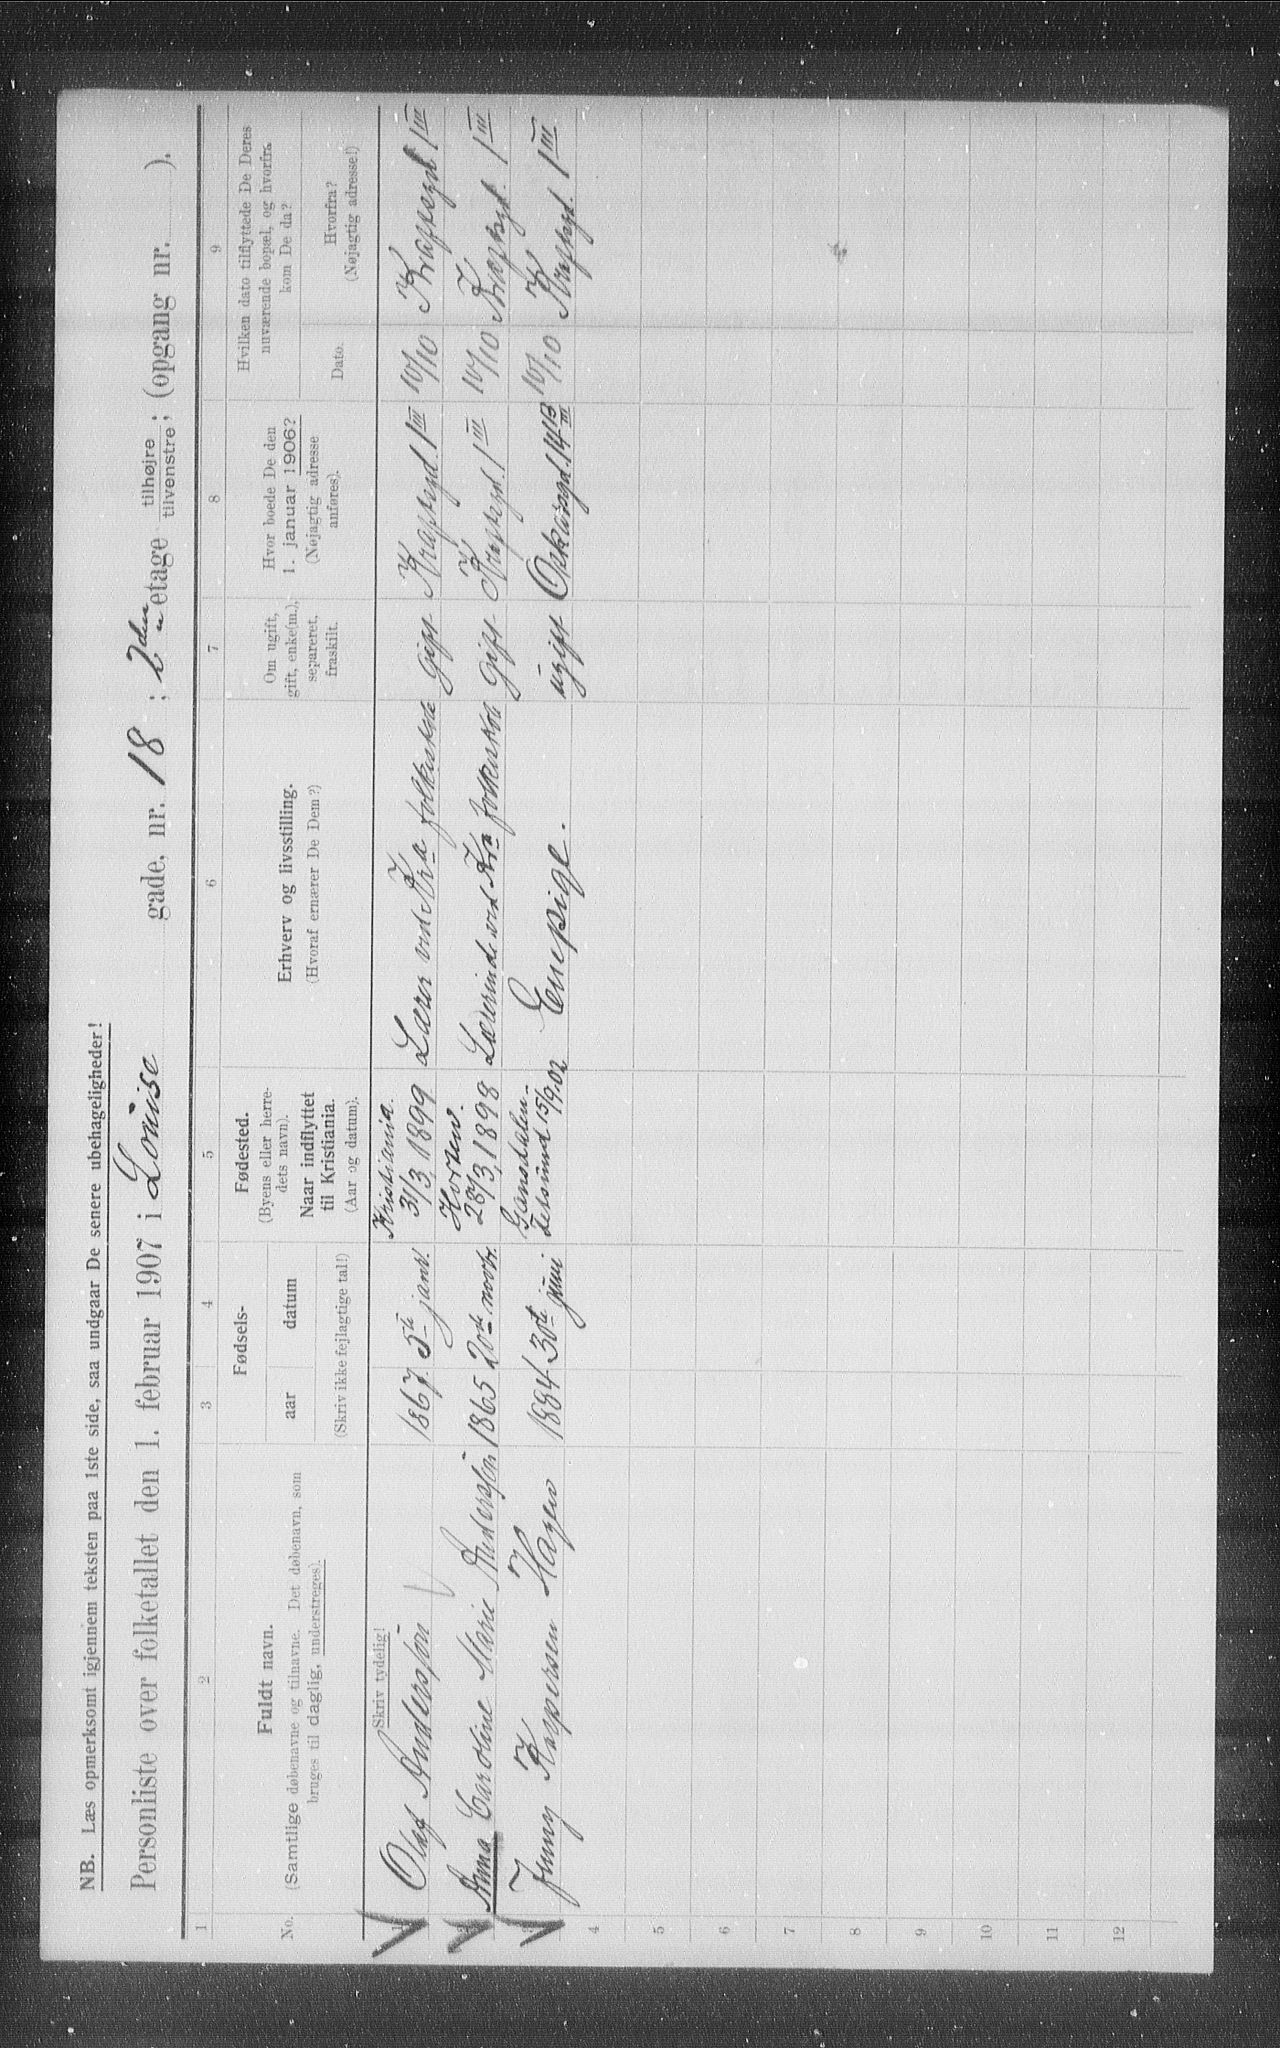 NB. Læs opmerksomt igjennem teksten paa 1ste side, saa undgaar De senere ubehageligheder!
Personliste over folketallet den 1. februar 1907 i Louise gade, nr. 18; 2den etage tilhøjre tilvenstre; (opgang nr. ).
1 2 3 4 5 6 7 8 9
No.
Fuldt navn.
(Samtlige døbenavne og tilnavne. Det døbenavn, som
bruges til daglig, understreges).
Fødsels-
aar datum
(Skriv ikke fejlagtige tal!)
Fødested.
(Byens eller herre-
dets navn).
Naar indflyttet
til Kristiania.
(Aar og datum).
Erhverv og livsstilling.
(Hvoraf ernærer De Dem?)
Om ugift,
gift, enke(m.),
separeret,
fraskilt.
Hvor boede De den
1. januar 1906?
(Nøjagtig adresse
anføres).
Hvilken dato tilflyttede De Deres
nuværende bopæl, og hvorfra
kom De da?
Dato.
Hvorfra?
(Nøjagtig adresse!)
Skriv tydelig!
1 Olaf Anderssøn 1867 5te janr. Kristiania. 31/3 1899 Lærer ved Kra folkeskole Gift Kraftsgd. 1 III 10/10 Kraftsgd 1 III
2 Anna Caroline Marie Anderssøn 1865 20de novbr. Horten. 28/3 1898 Lærerinde ved Kra folkeskole Gift Kraftsgd. 1 III 10/10 Kraftsgd. 1 III
3 Jenny Kaspersen Hagen 1884 30te juni Gansdalen - Fetsund 15/9 02 Enepige. ugift Oskarsgd. 14 B III 10/10 Kraftsgd. 1 III
4
5
6
7
8
9
10
11
12